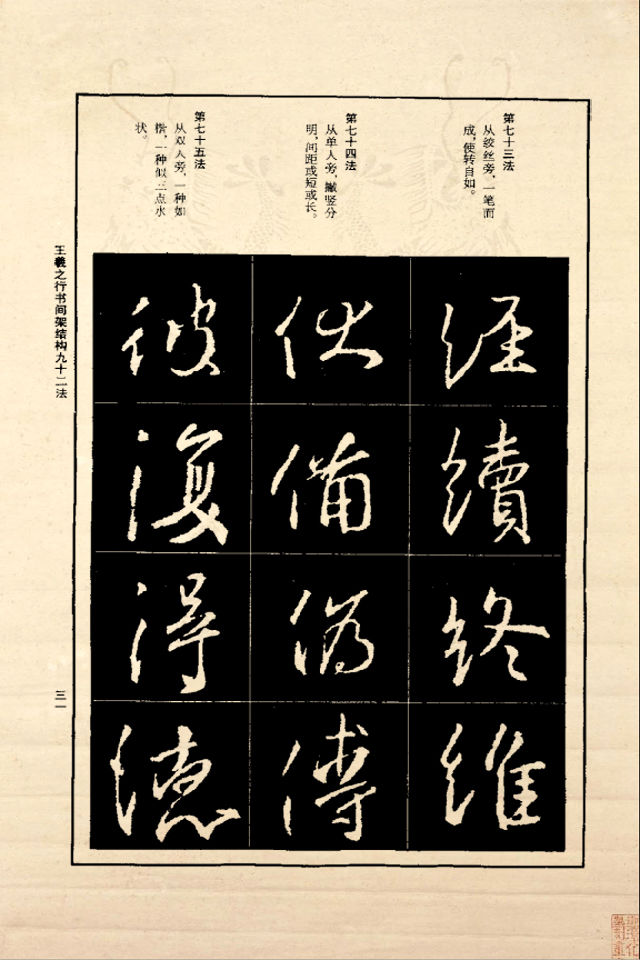 第七十三法
从绞丝旁，一笔而
成，使转自如。
第七十四法
从单人旁，撇竖分
明，间距或短或长。
第七十五法
从双人旁，一种如
楷，一种似三点水
状。
經續終維
伏備偽傅
彼復得德
王羲之行书间架结构九十二法
三一